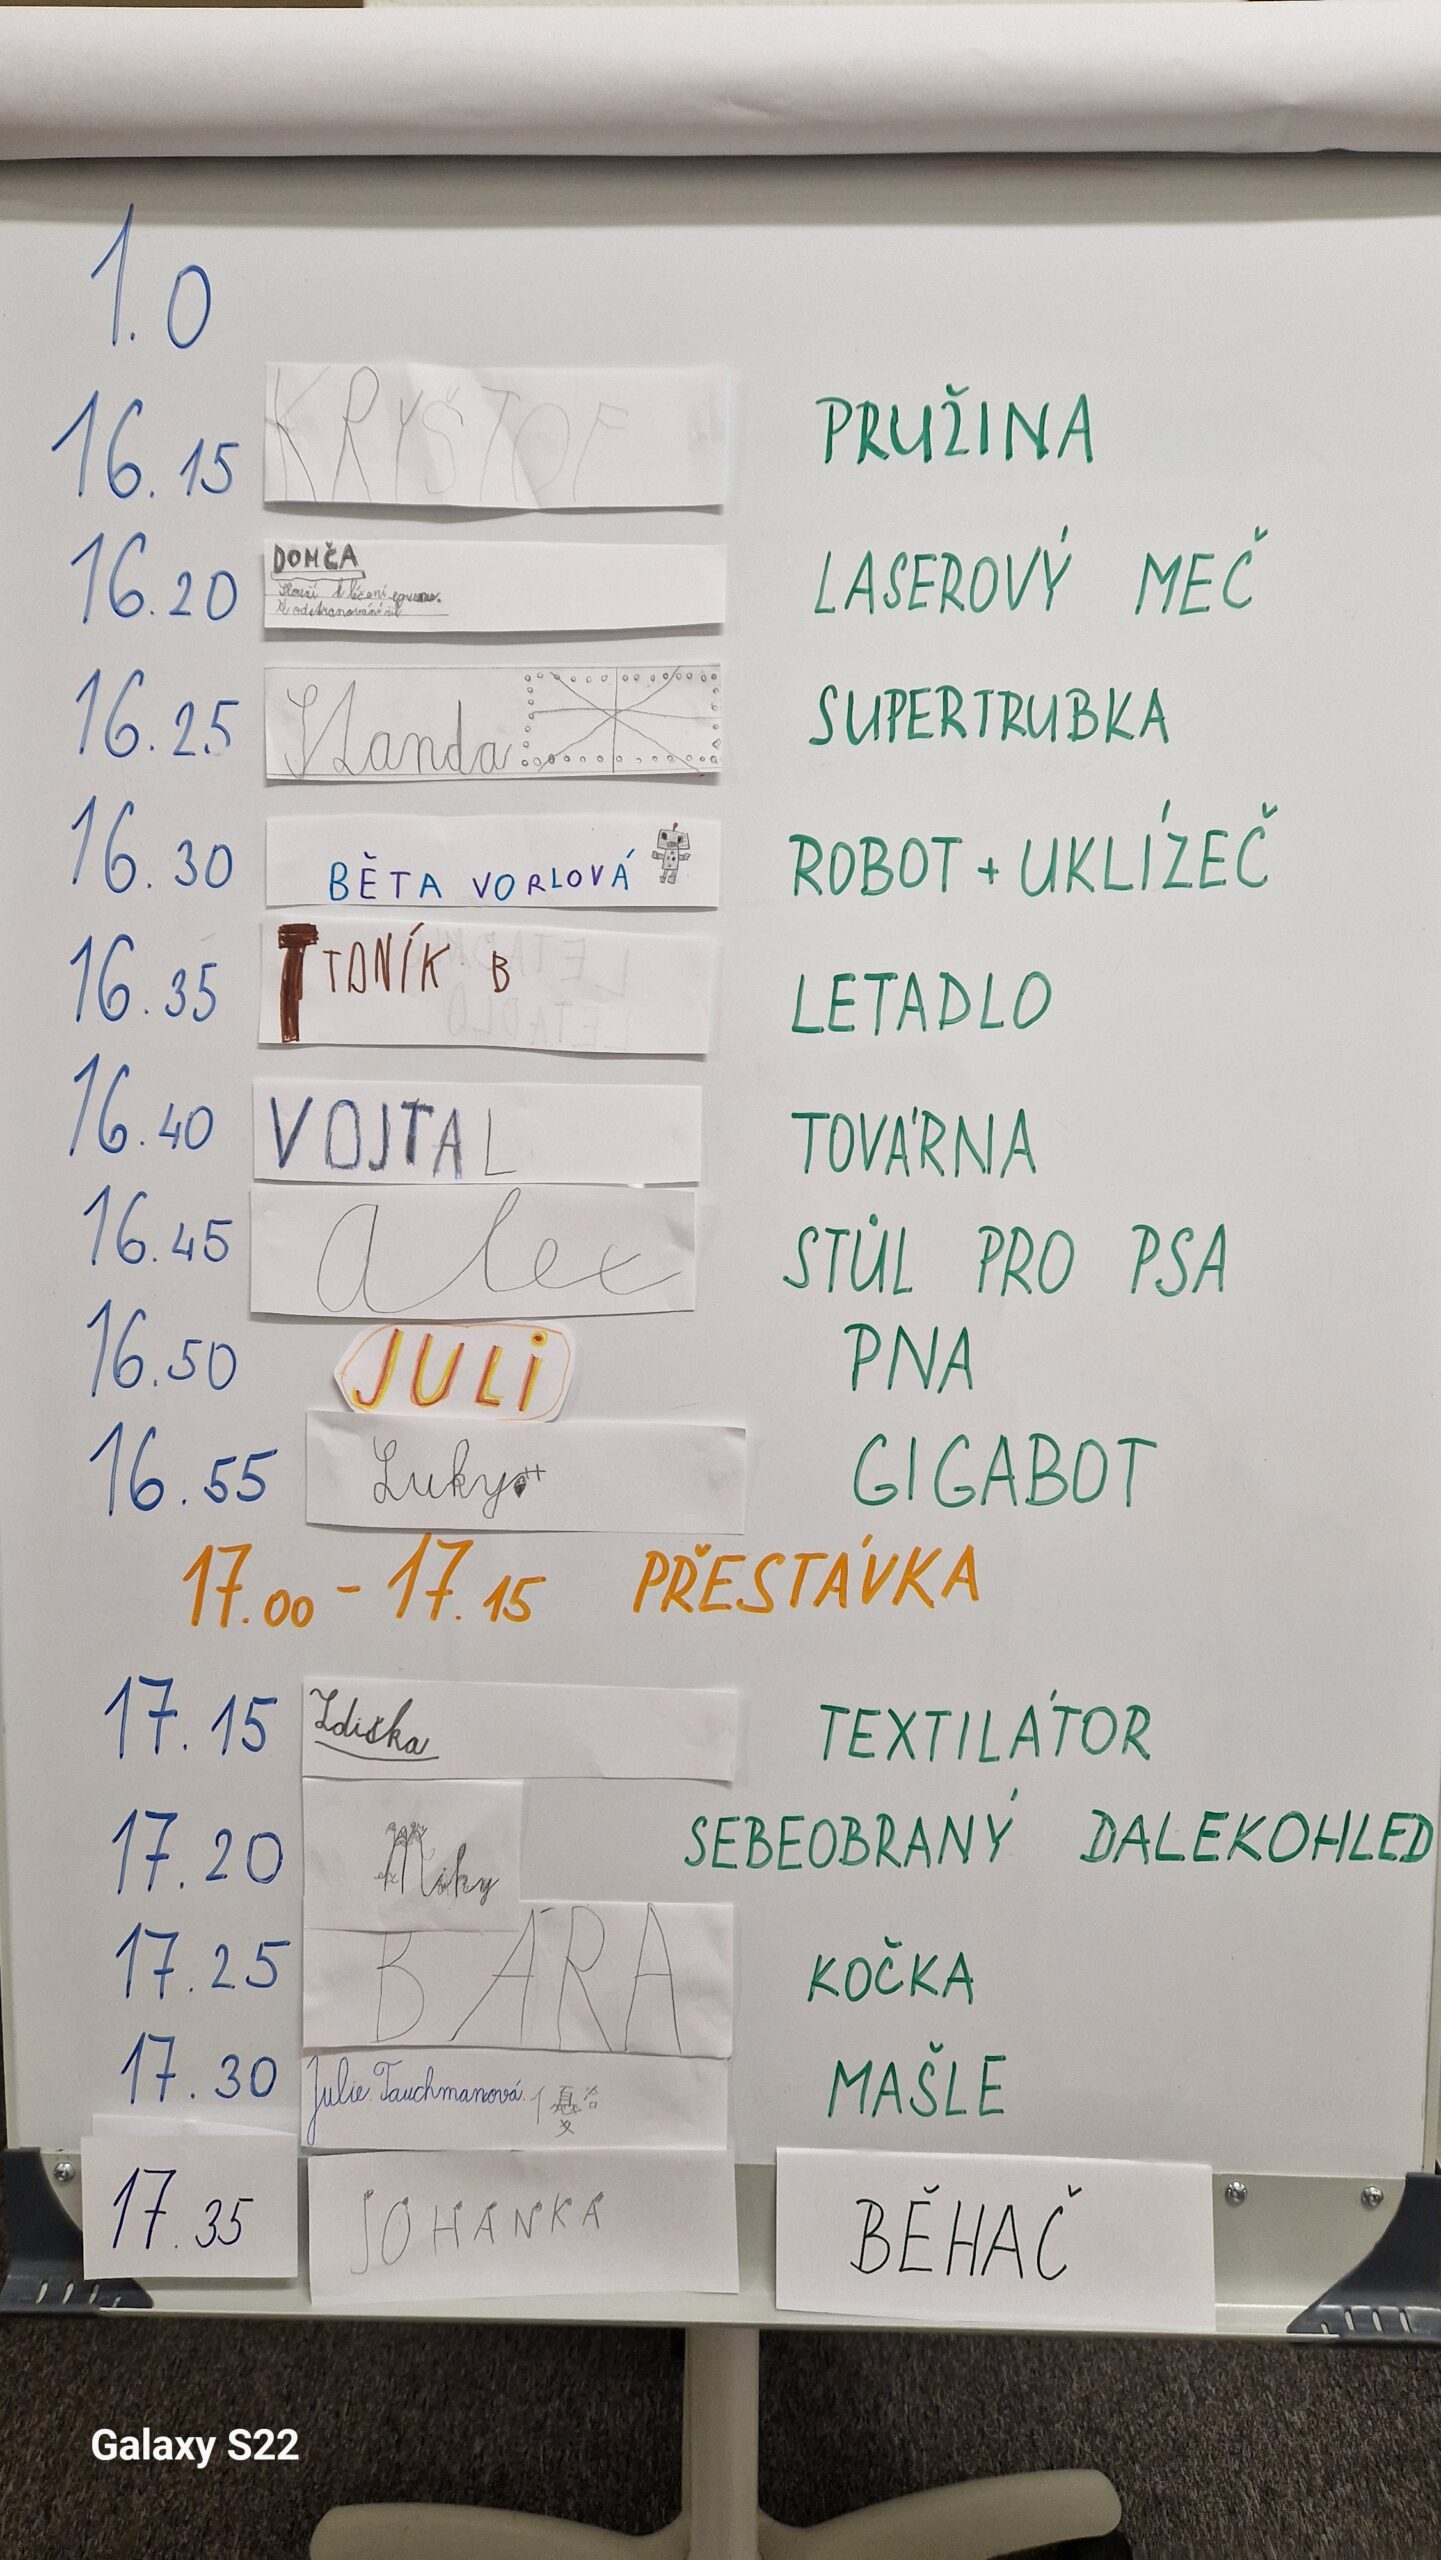 1.0
16.15 KRYŠTOF PRUŽINA
16.20 DOMČA LASEROVÝ MEČ
Slouží k léčení
K odstraňování
16.25 Standa SUPERTRUBKA
16.30 BĚTA VORLOVÁ ROBOT + UKLÍZEČ
16.35 TONÍK B LETADLO
16.40 VOJTA L TOVÁRNA
16.45 Alex STŮL PRO PSA
16.50 JULi PNA
16.55 Luky GIGABOT
17.00 - 17.15 PŘESTÁVKA
17.15 Zdiška TEXTILÁTOR
17.20 Miky SEBEOBRANÝ DALEKOHLED
17.25 BÁRA KOČKA
17.30 Julie Tauchmanová MAŠLE
17.35 JOHANKA BĚHAČ
Galaxy S22